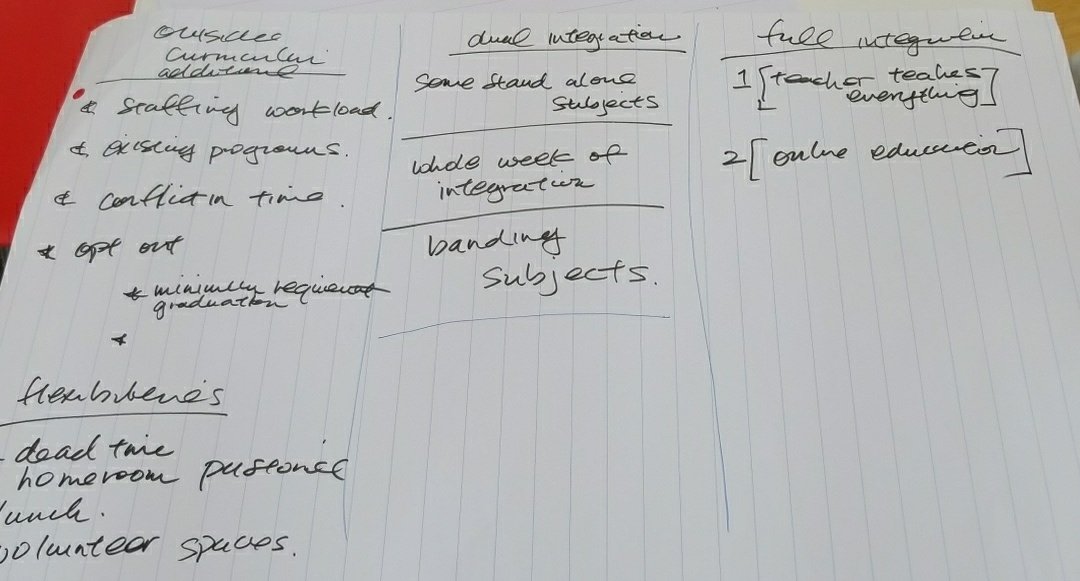 outsidec
curricular
additional
* staffing workload.
* existing programs.
* conflict in time.
* opt out
* minimum requirement
graduation
*
flexibilities
- dead time
homeroom pastoral
lunch.
volunteer spaces.
dual integration
some stand alone
subjects
whole week of
integration
banding
subjects.
full integration
1 [teacher teaches
everything]
2 [online education]